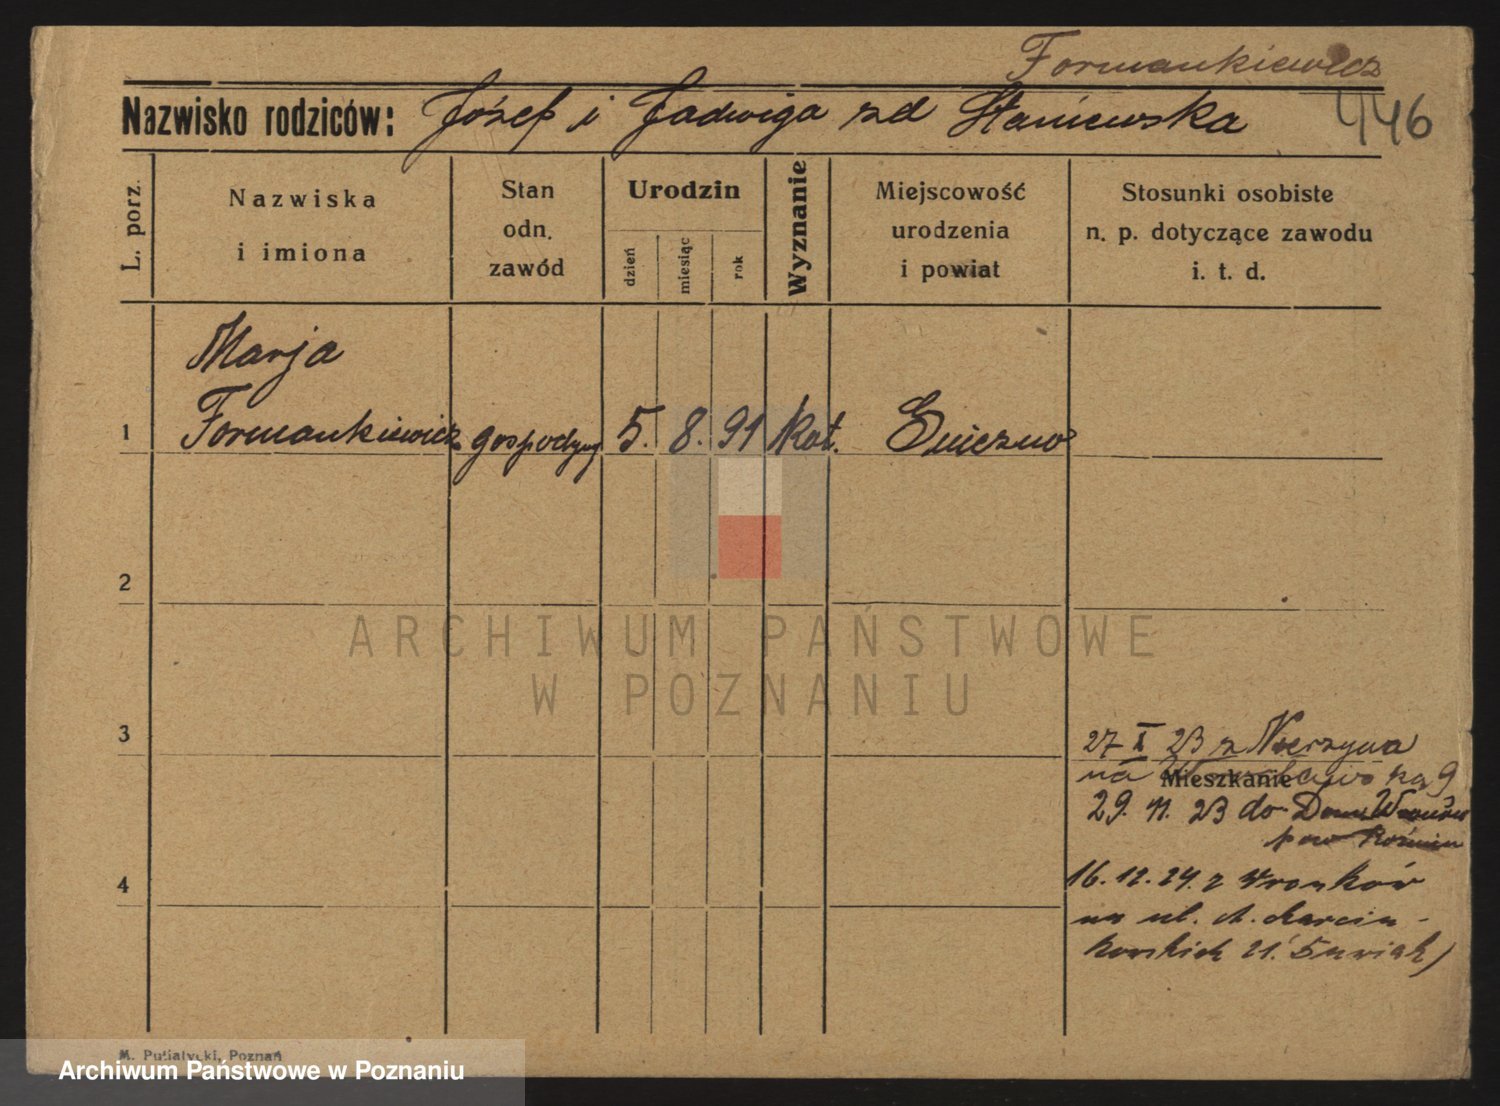 Formankiewicz
Nazwisko rodziców: Józef i Jadwiga zd Staniewska 446
L. porz.
Nazwiska
i imiona
Stan
odn.
zawód
Urodzin
dzień
miesiąc
rok
Wyznanie
Miejscowość
urodzenia
i powiat
Stosunki osobiste
n. p. dotyczące zawodu
i. t. d.
Marja
1 Formankiewicz gospodyni 5. 8. 91 Kat. Gniezno
2
3
4
27 X 23 z
na 9
Mieszkanie
29. 11. 23 do
pow Koźmin
16. 12. 24. z Wronków
na ul. Marcin-
kowskich 21.
ARCHIWUM PAŃSTWOWE
W POZNANIU
M. Putiatycki, Poznań
Archiwum Państwowe w Poznaniu